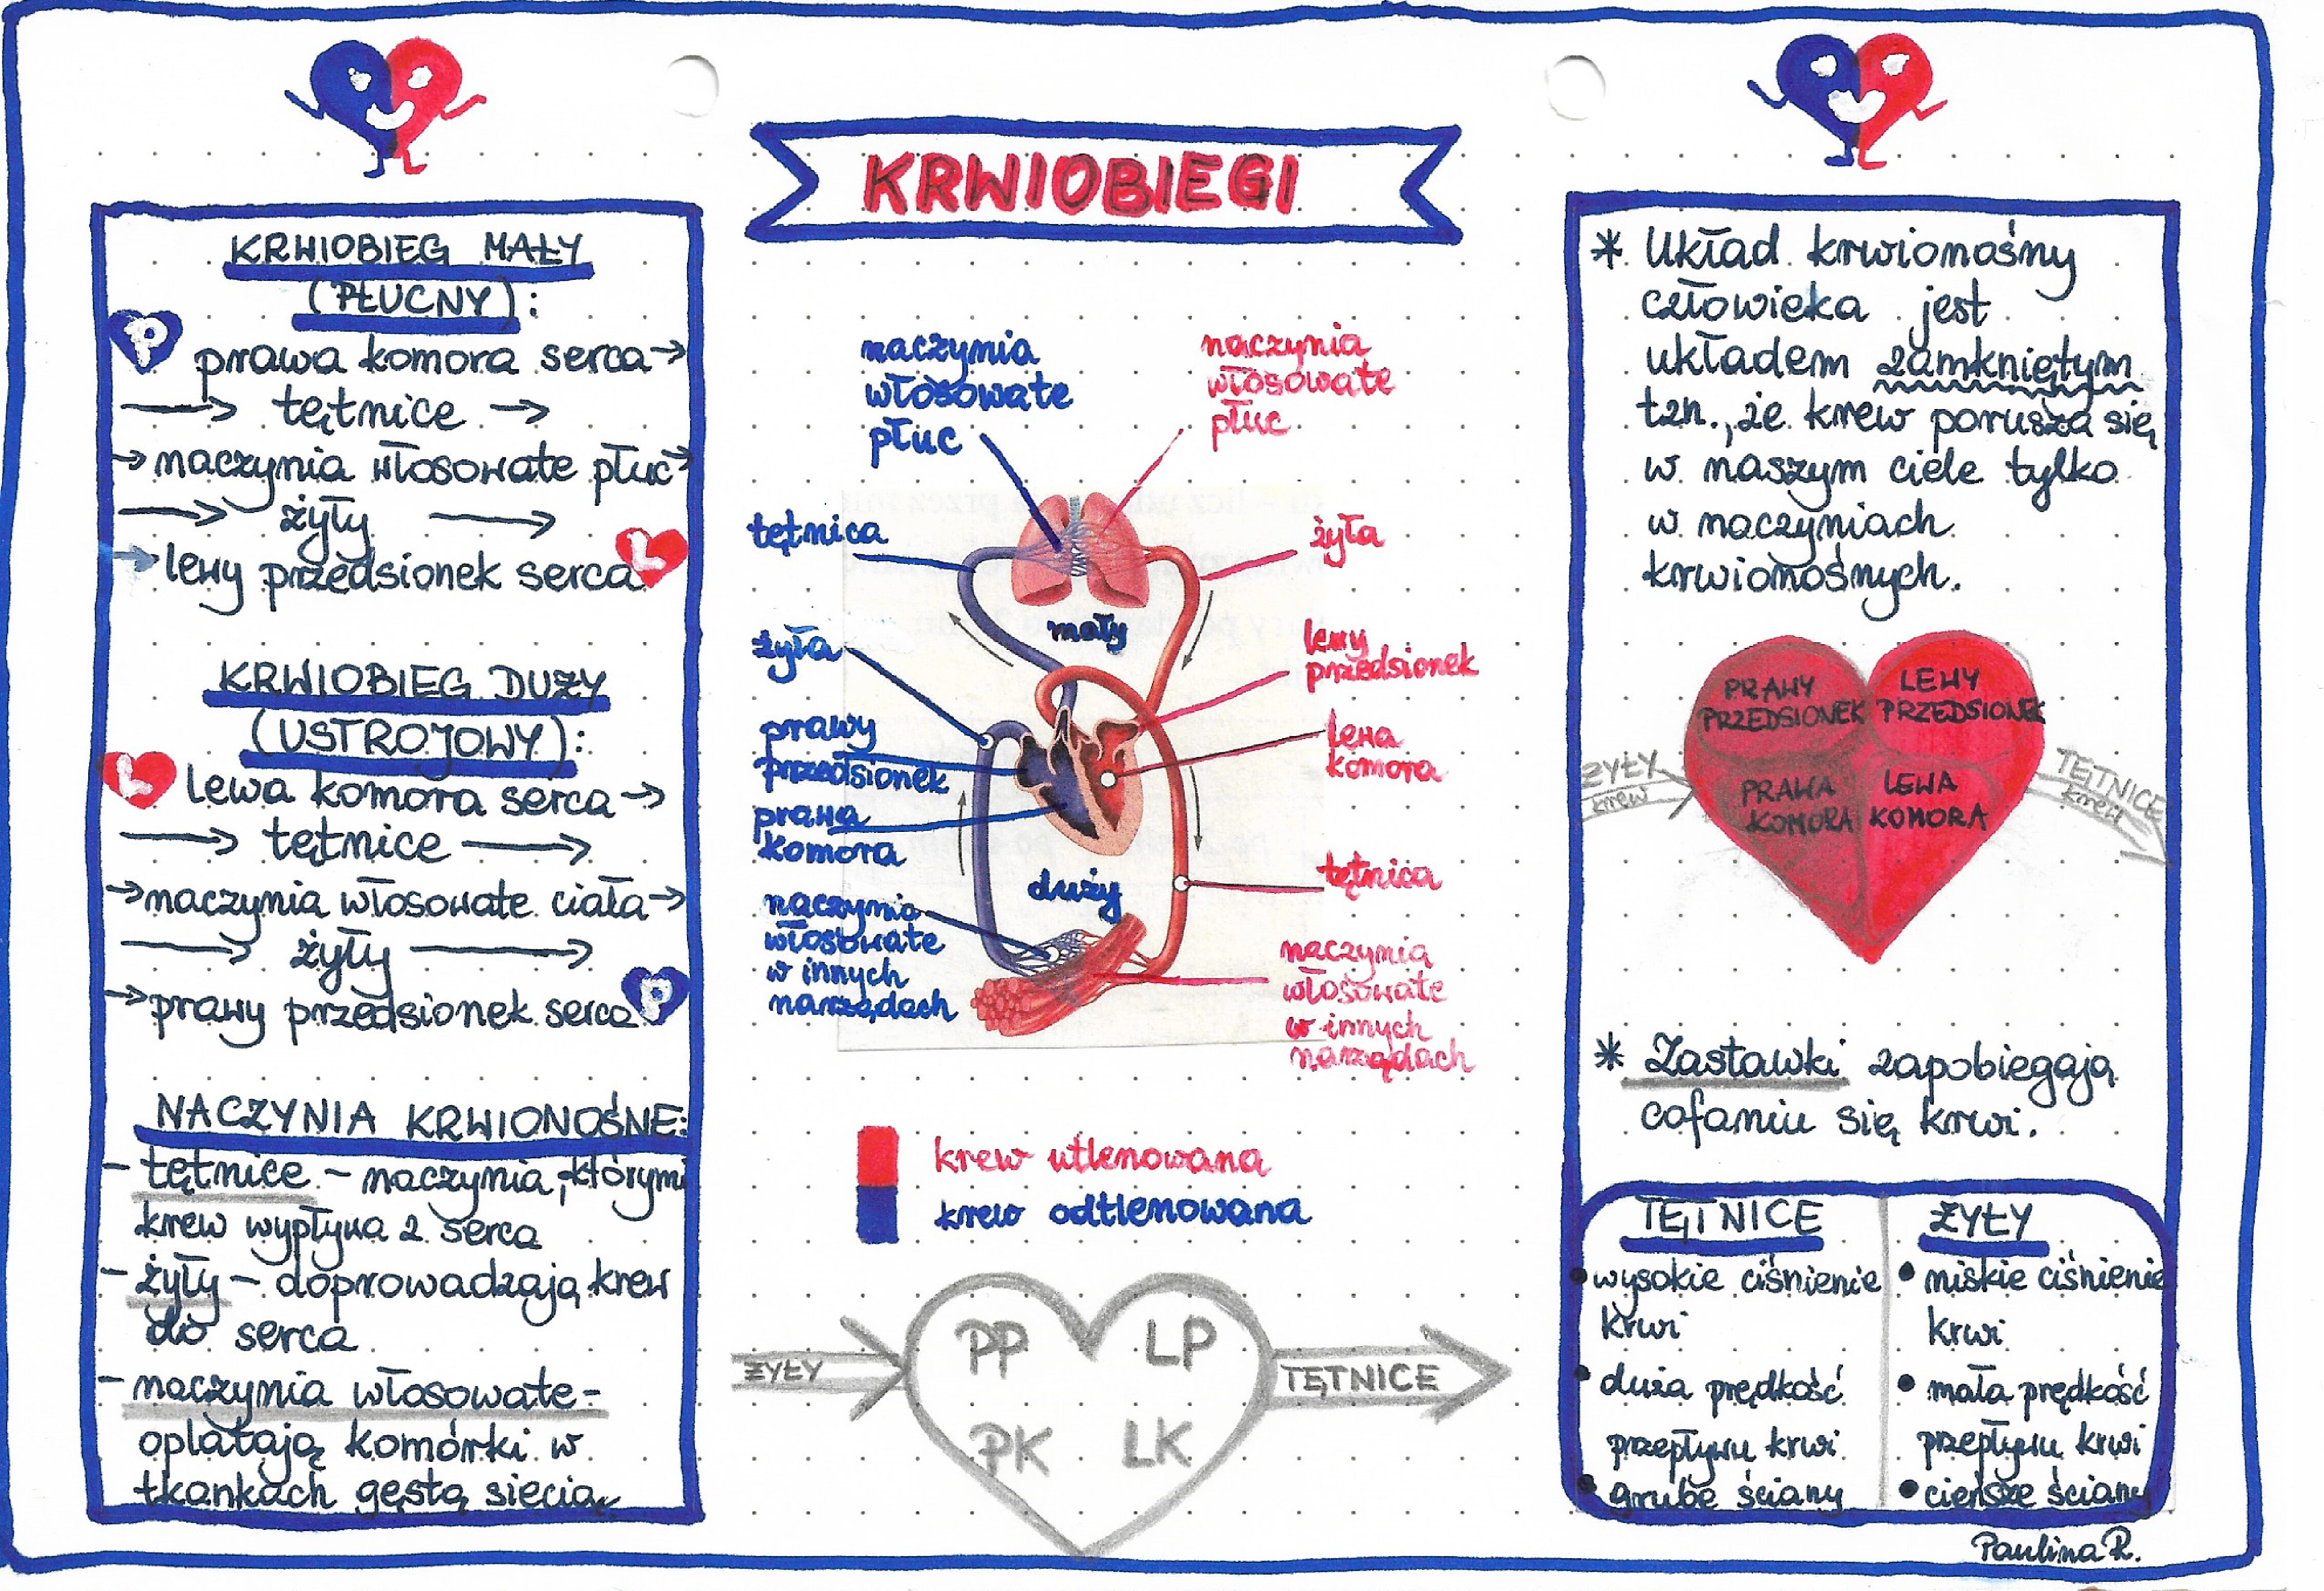 KRWIOBIEGI
KRWIOBIEG MAŁY
(PŁUCNY):
P
prawa komora serca→
→ tętnice →
→naczynia włosowate płuc→
→ żyły →
→lewy przedsionek serca
L
KRWIOBIEG DUŻY
(USTROJOWY):
L
lewa komora serca→
→ tętnice →
→naczynia włosowate ciała→
→ żyły →
→prawy przedsionek serca
P
NACZYNIA KRWIONOŚNE:
- tętnice - naczynia, którymi
krew wypływa z serca
- żyły - doprowadzają krew
do serca
- naczynia włosowate-
oplatają komórki w
tkankach gęstą siecią
naczynia
włosowate
płuc
naczynia
włosowate
płuc
tętnica
żyła
mały
żyła
lewy
przedsionek
prawy
przedsionek
lewa
komora
prawa
komora
duży
tętnica
naczynia
włosowate
w innych
narządach
naczynia
włosowate
w innych
narządach
krew utlenowana
krew odtlenowana
ŻYŁY
PP
LP
PK
LK
TĘTNICE
* Układ krwionośny
człowieka jest
układem zamkniętym
tzn., że krew porusza się
w naszym ciele tylko
w naczyniach
krwionośnych.
PRAWY
PRZEDSIONEK
LEWY
PRZEDSIONEK
PRAWA
KOMORA
LEWA
KOMORA
ŻYŁY
krew
TĘTNICE
krew
* Zastawki zapobiegają
cofaniu się krwi.
TĘTNICE
• wysokie ciśnienie
krwi
• duża prędkość
przepływu krwi
• grube ściany
ŻYŁY
• niskie ciśnienie
krwi
• mała prędkość
przepływu krwi
• cieńsze ściany
Paulina R.